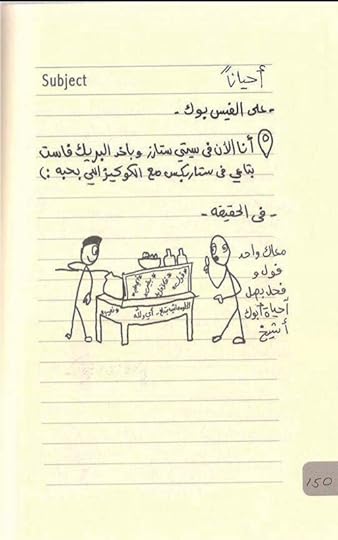 Subject
أحياناً
- على الفيس بوك -
أنا الأن فى سيتي ستارز وباخد البريك فاست
بتاعي فى ستاربكس مع الكوكيز اللي بحبه :)
- فى الحقيقه -
معاك واحد
فول و
فحل بصل
أحياة أبوك
أ شيخ
150